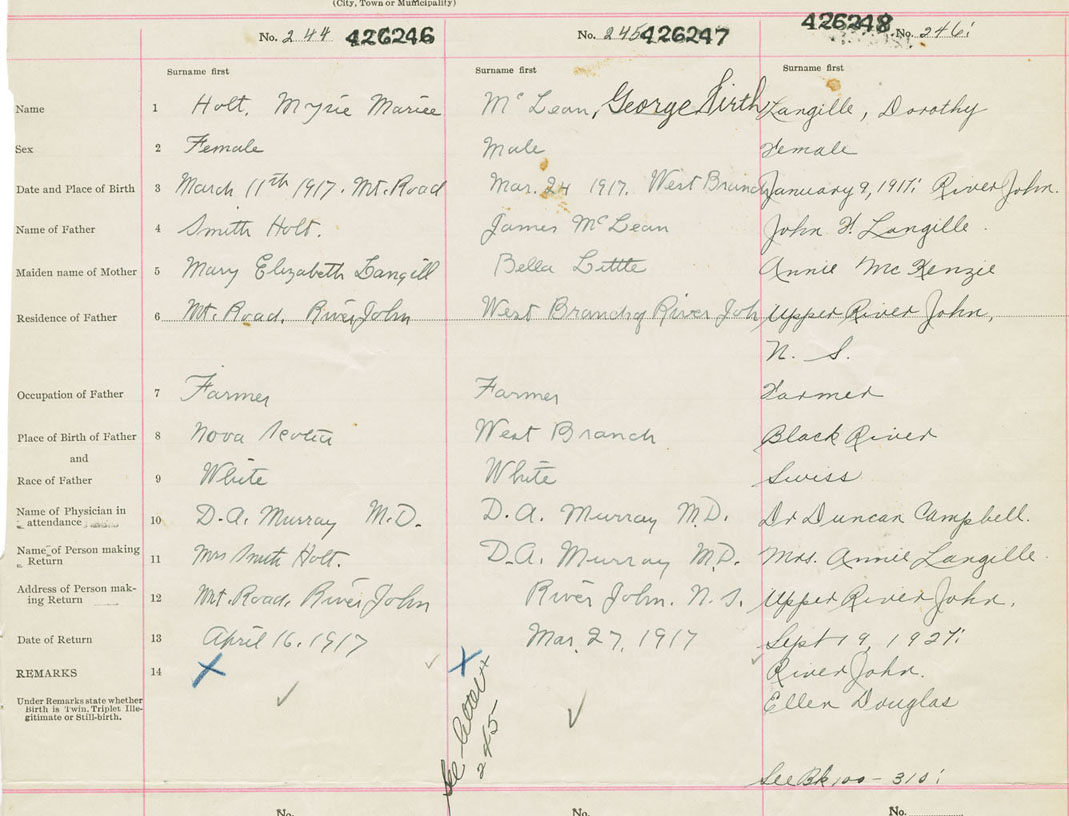 (City, Town or Municipality)
No. 244 426246 No. 245 426247 426248 No. 246
Surname first Surname first Surname first
Name 1 Holt, Marie McLean, George Firth Langille, Dorothy
Sex 2 Female Male Female
Date and Place of Birth 3 March 11th 1917. Mt. Road Mar. 24 1917. West Branch January 9, 1917. River John.
Name of Father 4 Smith Holt. James McLean John H. Langille.
Maiden name of Mother 5 Mary Elizabeth Langill Bella Little Annie McKenzie
Residence of Father 6 Mt. Road, River John West Branch River John Upper River John,
N. S.
Occupation of Father 7 Farmer Farmer Farmer
Place of Birth of Father 8 Nova Scotia West Branch Black River
and
Race of Father 9 White White Swiss
Name of Physician in
attendance 10 D.A. Murray M.D. D.A. Murray M.D. Dr Duncan Campbell.
Name of Person making
Return 11 Mrs Smith Holt. D.A. Murray M.D. Mrs. Annie Langille.
Address of Person mak-
ing Return 12 Mt. Road, River John River John. N.S. Upper River John.
Date of Return 13 April 16. 1917 Mar. 27, 1917 Sept 19, 1927
REMARKS 14 X X River John.
Under Remarks state whether
Birth is Twin, Triplet Ille-
gitimate or Still-birth.
Ellen Douglas
See letter
245
See Bk 100 - 310
No. No. No.